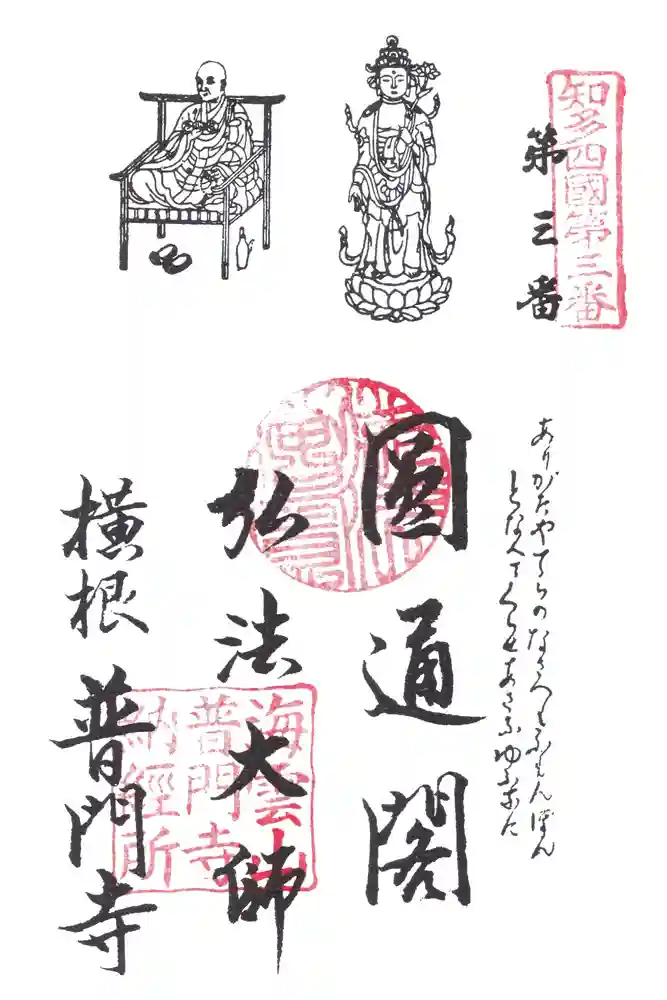 知多四國第三番
第三番
ありがたやてらのなさへもふもんぼん
となへてくらせあさなゆふなに
圓通閣
弘法大師
海雲山
普門寺
納經所
横根
普門寺